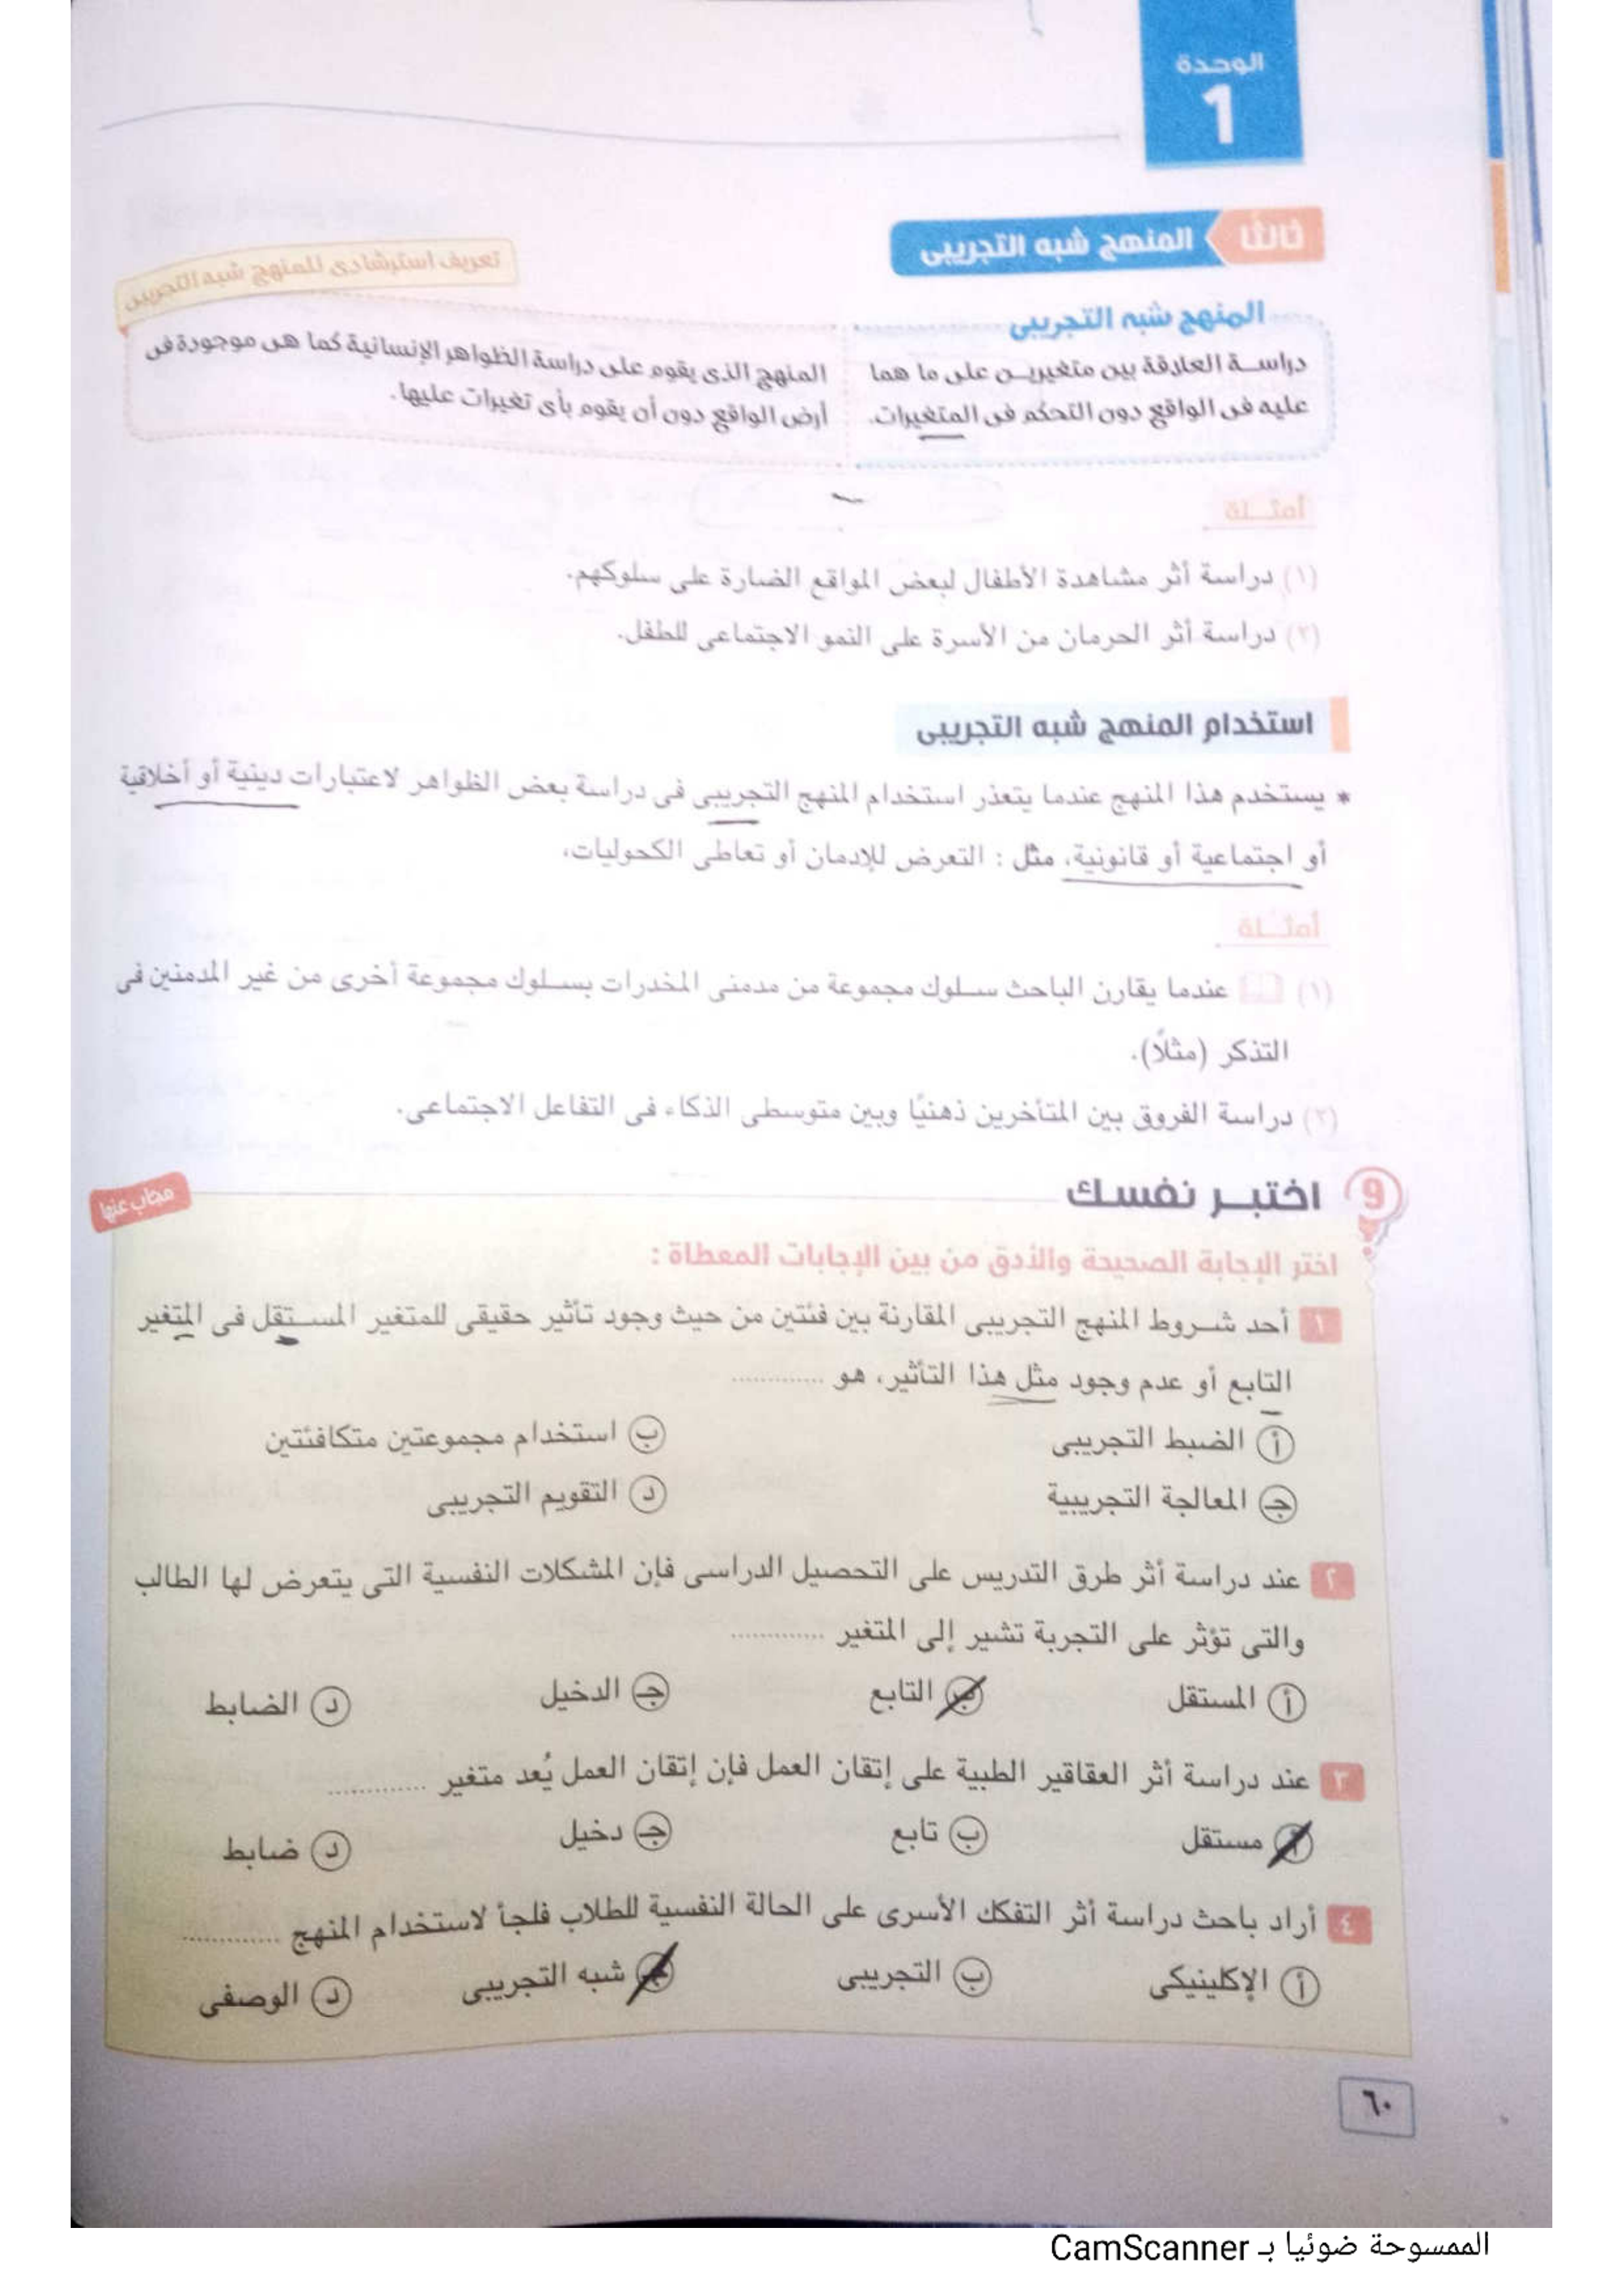 الوحدة
1
ثالثًا
المنهج شبه التجريبى
تعريف استرشادى للمنهج شبه التجريبى
المنهج شبه التجريبى
دراسة العلاقة بين متغيرين على ما هما
عليه فى الواقع دون التحكم فى المتغيرات.
المنهج الذى يقوم على دراسة الظواهر الإنسانية كما هى موجودة فى
أرض الواقع دون أن يقوم بأى تغيرات عليها.
أمثلة
(١) دراسة أثر مشاهدة الأطفال لبعض المواقع الضارة على سلوكهم.
(٢) دراسة أثر الحرمان من الأسرة على النمو الاجتماعى للطفل.
استخدام المنهج شبه التجريبى
* يستخدم هذا المنهج عندما يتعذر استخدام المنهج التجريبى فى دراسة بعض الظواهر لاعتبارات دينية أو أخلاقية
أو اجتماعية أو قانونية، مثل : التعرض للإدمان أو تعاطى الكحوليات.
أمثلة
(١) عندما يقارن الباحث سلوك مجموعة من مدمنى المخدرات بسلوك مجموعة أخرى من غير المدمنين فى
التذكر (مثلًا).
(٢) دراسة الفروق بين المتأخرين ذهنيًا وبين متوسطى الذكاء فى التفاعل الاجتماعى.
9 اختبر نفسك
مجاب عنها
اختر الإجابة الصحيحة والأدق من بين الإجابات المعطاة :
١ أحد شروط المنهج التجريبى المقارنة بين فئتين من حيث وجود تأثير حقيقى للمتغير المستقل فى المتغير
التابع أو عدم وجود مثل هذا التأثير، هو .............
أ الضبط التجريبى ب استخدام مجموعتين متكافئتين
جـ المعالجة التجريبية د التقويم التجريبى
٢ عند دراسة أثر طرق التدريس على التحصيل الدراسى فإن المشكلات النفسية التى يتعرض لها الطالب
والتى تؤثر على التجربة تشير إلى المتغير .............
أ المستقل ب التابع جـ الدخيل د الضابط
٣ عند دراسة أثر العقاقير الطبية على إتقان العمل فإن إتقان العمل يُعد متغير .............
أ مستقل ب تابع جـ دخيل د ضابط
٤ أراد باحث دراسة أثر التفكك الأسرى على الحالة النفسية للطلاب فلجأ لاستخدام المنهج .............
أ الإكلينيكى ب التجريبى جـ شبه التجريبى د الوصفى
٦٠
الممسوحة ضوئيا بـ CamScanner